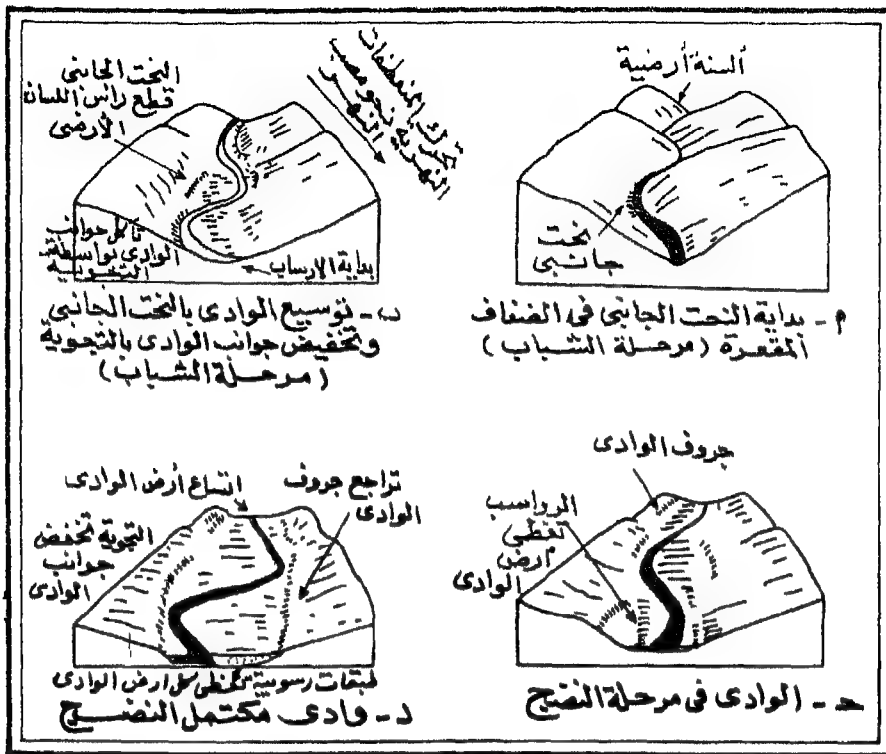 ألسنة أرضية
نحت
جانبى
م - بداية النحت الجانبى فى الضفاف
المقعرة (مرحلة الشباب)
النحت الجانبى
قطع رأس اللسان
الأرضى
المنعطفات
النهرية نحو مصب
النهر
تآكل جوانب
الوادى بواسطة
التجوية
بداية الارساب
ب - توسيع الوادى بالنحت الجانبى
وتخفيض جوانب الوادى بالتجوية
(مرحلة الشباب)
جروف الوادى
الرواسب
تغطى
أرض
الوادى
حـ - الوادى فى مرحلة النضج
اتساع أرض الوادى
تراجع جروف
الوادى
التجوية تخفض
جوانب
الوادى
طبقات رسوبية تغطى كل ارض الوادى
د - وادى مكتمل النضج